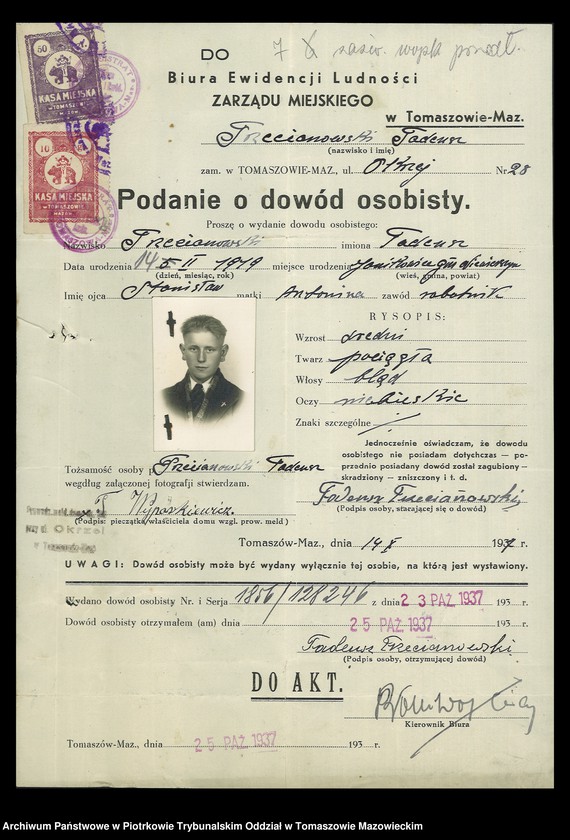 50
KASA MIEJSKA
w TOMASZOWIE
MAZOW.
10
KASA MIEJSKA
w TOMASZOWIE
MAZOW.
DO
Biura Ewidencji Ludności
ZARZĄDU MIEJSKIEGO
w Tomaszowie-Maz.
Trzecianowski Tadeusz
(nazwisko i imię)
zam. w TOMASZOWIE-MAZ., ul. Okrzej Nr. 28
Podanie o dowód osobisty.
Proszę o wydanie dowodu osobistego:
Nazwisko Trzecianowski imiona Tadeusz
Data urodzenia 14 II 1919 miejsce urodzenia
(dzień, miesiąc, rok) (wieś, gmina, powiat)
Imię ojca Stanisław matki Antonina zawód robotnik
RYSOPIS:
Wzrost średni
Twarz pociągła
Włosy bląd
Oczy niebieskie
Znaki szczególne
Jednocześnie oświadczam, że dowodu
osobistego nie posiadam dotychczas — po-
przednio posiadany dowód został zagubiony —
skradziony — zniszczony i t. d.
Tożsamość osoby p. Trzecianowski Tadeusz
według załączonej fotografii stwierdzam.
Tadeusz Trzecianowski
(Podpis osoby, starającej się o dowód)
(Podpis: pieczątka właściciela domu wzgl. prow. meld)
przy ul. Okrzei
w Tomaszowie-Maz.
Tomaszów-Maz., dnia 14 X 1937 r.
UWAGI: Dowód osobisty może być wydany wyłącznie tej osobie, na którą jest wystawiony.
Wydano dowód osobisty Nr. i Serja 1856/128246 z dnia 23 PAŹ. 1937 193 r.
Dowód osobisty otrzymałem (am) dnia 25 PAŹ 1937 193 r.
Tadeusz Trzecianowski
(Podpis osoby, otrzymującej dowód)
DO AKT.
Kierownik Biura
Tomaszów-Maz., dnia 25 PAŹ 1937 193 r.
Archiwum Państwowe w Piotrkowie Trybunalskim Oddział w Tomaszowie Mazowieckim